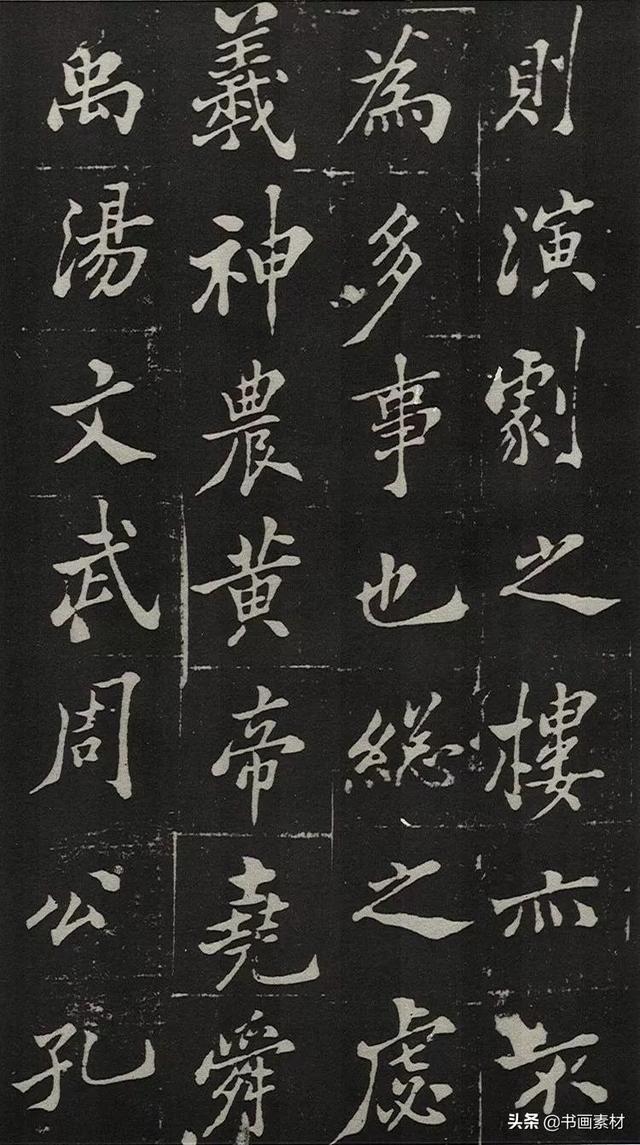 則演劇之樓亦未
為多事也総之虙
羲神農黃帝堯舜
禹湯文武周公孔
头条 @书画素材